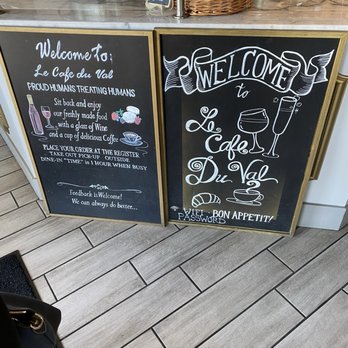 Welcome to:
Le Cafe du Val
PROUD HUMANS TREATING HUMANS
Sit back and enjoy
our freshly made food
with a glass of Wine
and a cup of delicious Coffee
PLACE YOUR ORDER AT THE REGISTER
TAKE OUT PICK-UP OUTSIDE
DINE-IN "TIME" is 1 HOUR WHEN BUSY
Feedback is Welcome!
We can always do better...
WELCOME
to
Le
Cafe
Du Val
WIFI
PASSWORD
BON APPETIT!